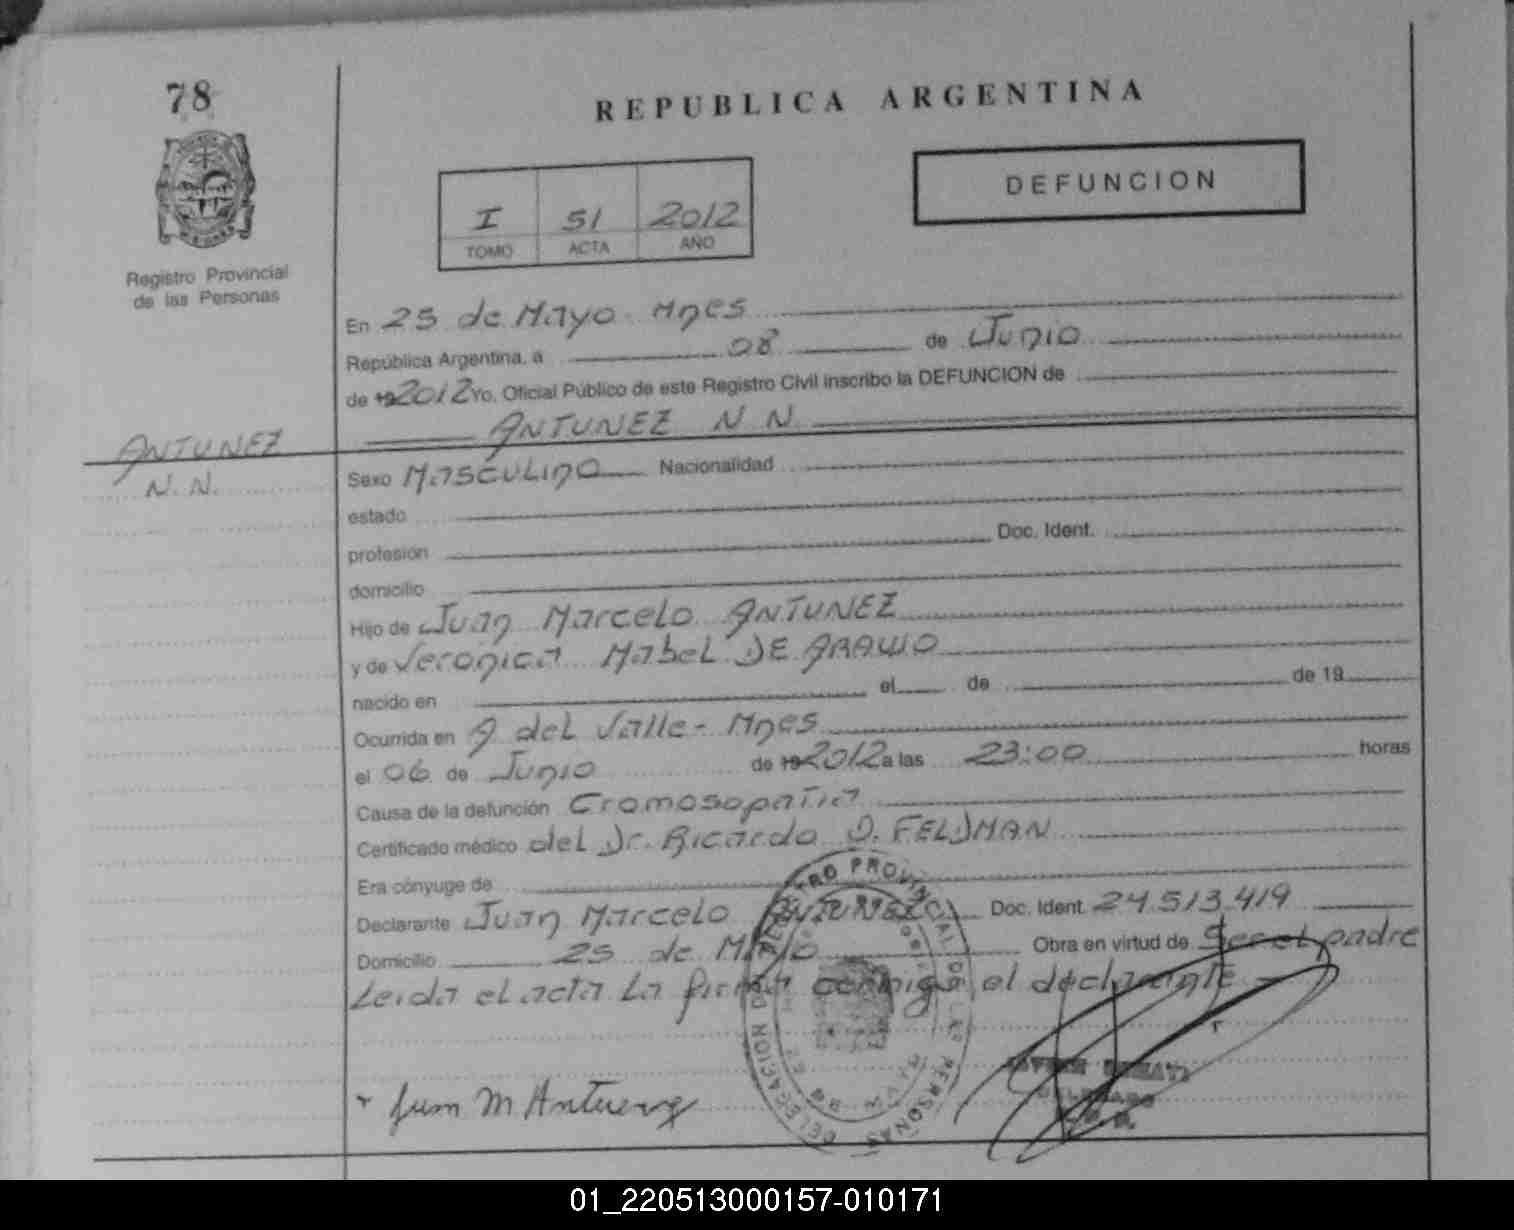 78
REPUBLICA ARGENTINA
DEFUNCION
I 51 2012
TOMO ACTA AÑO
Registro Provincial
de las Personas
En 25 de Mayo Mnes
República Argentina, a 08 de Junio
de 19 2012 Yo, Oficial Público de este Registro Civil inscribo la DEFUNCION de
ANTUNEZ N N
ANTUNEZ
N. N.
Sexo MASCULINO Nacionalidad
estado
profesión Doc. Ident.
domicilio
Hijo de Juan Marcelo ANTUNEZ
y de Veronica Mabel DE ARAUJO
nacido en el de de 19
Ocurrida en A del Valle - Mnes
el 06 de Junio de 19 2012 a las 23:00 horas
Causa de la defunción Cromosopatia
Certificado médico del Dr. Ricardo D. FELDMAN
Era cónyuge de
Declarante Juan Marcelo ANTUNEZ Doc. Ident. 24.513.419
Domicilio 25 de Mayo Obra en virtud de Ser el padre
Leida el acta La firma conmigo el declarante
Juan M Antunez
DELEGACION REGISTRO PROVINCIAL DE LAS PERSONAS
DELEGADO
01_220513000157-010171